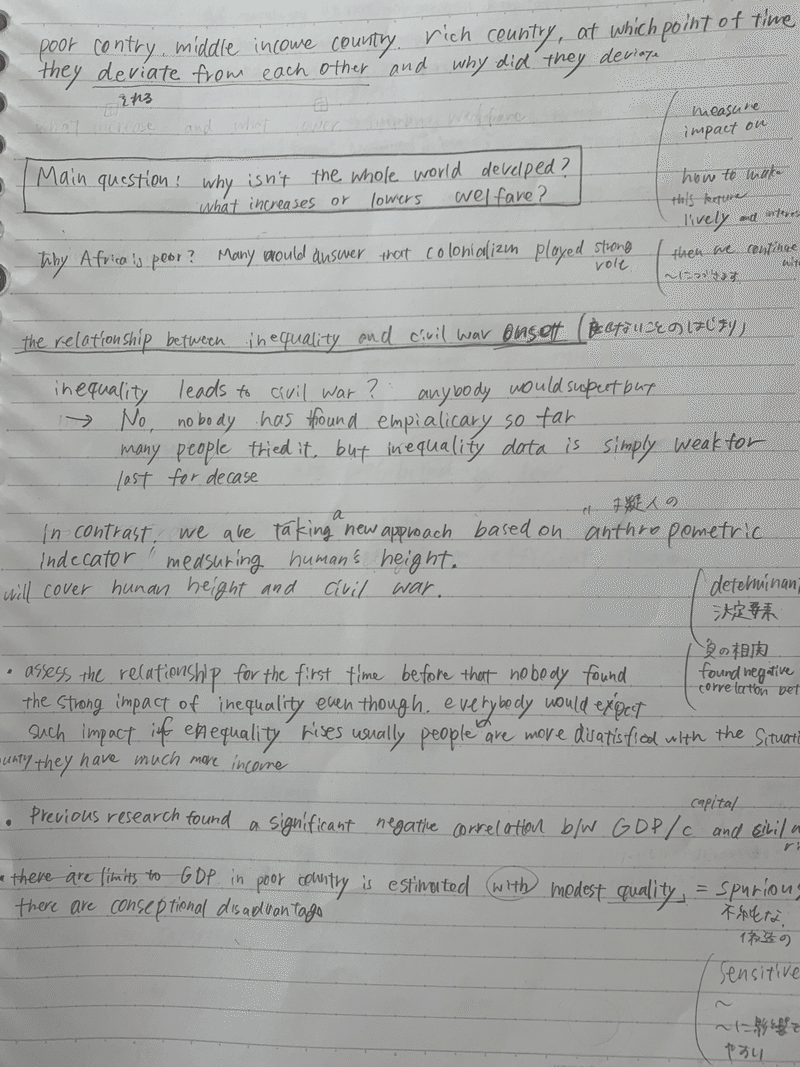 poor contry. middle income country. rich country, at which point of time
they deviate from each other and why did they deviate
それる
measure
impact on
how to make
this lecture
lively and
Main question: why isn't the whole world develped?
what increases or lowers welfare?
Why Africa is poor? Many would answer that colonializm played strong
role.
then we continue
～につづきます
the relationship between inequality and civil war onsett (良くないことのはじまり)
inequality leads to civil war? anybody would suspect but
→ No, nobody has found empialicary so far
many people tried it, but inequality data is simply weak for
last for decase
"
擬人の
In contrast, we are taking a new approach based on anthropometric
indecator " measuring human's height.
will cover human height and civil war.
determinan
決定要素
負の相関
found negative
correlation bet
• assess the relationship for the first time before that nobody found
the strong impact of inequality even though, everybody would expect
such impact if enequality rises usually people are more disatisfied with the situati
they have much more income
• Previous research found a significant negative correlation b/w GDP/c and civil w
capital
• there are limits to GDP in poor country is estimated with modest quality, = spurious
there are conseptional disadvantage
不純な,
偽造の
sensitive
～
～に影響
やすい